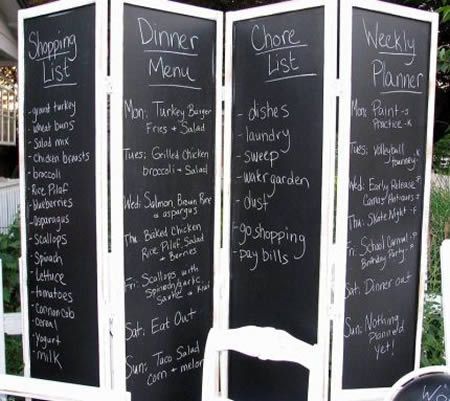 Shopping
List
- ground turkey
- wheat buns
- Salad mix
- chicken breasts
- broccoli
- Rice Pilaf
- blueberries
- asparagus
- scallops
- Spinach
- Lettuce
- tomatoes
- corn on cob
- cereal
- yogurt
- milk
Dinner
Menu
Mon: Turkey Burger
Fries + Salad
Tues: Grilled Chicken
broccoli + Salad
Wed: Salmon Brown Rice
+ aspargus
Thu: Baked Chicken
Rice Pilaf, Salad
+ Berries
Fri: Scallops with
Spinach/garlic
Sat: Eat Out
Sun: Taco Salad
corn + melon
Chore
List
- dishes
- laundry
- sweep
- watr garden
- dust
- go shopping
- pay bills
Weekly
Planner
Mon: Paint -s
Practice -K
Tues: Volleyball
Wed: Early Release
Thu: Skate Night
Fri: School Carnival
Birthday Party
Sat: Dinner out
Sun: Nothing
Planned
yet!